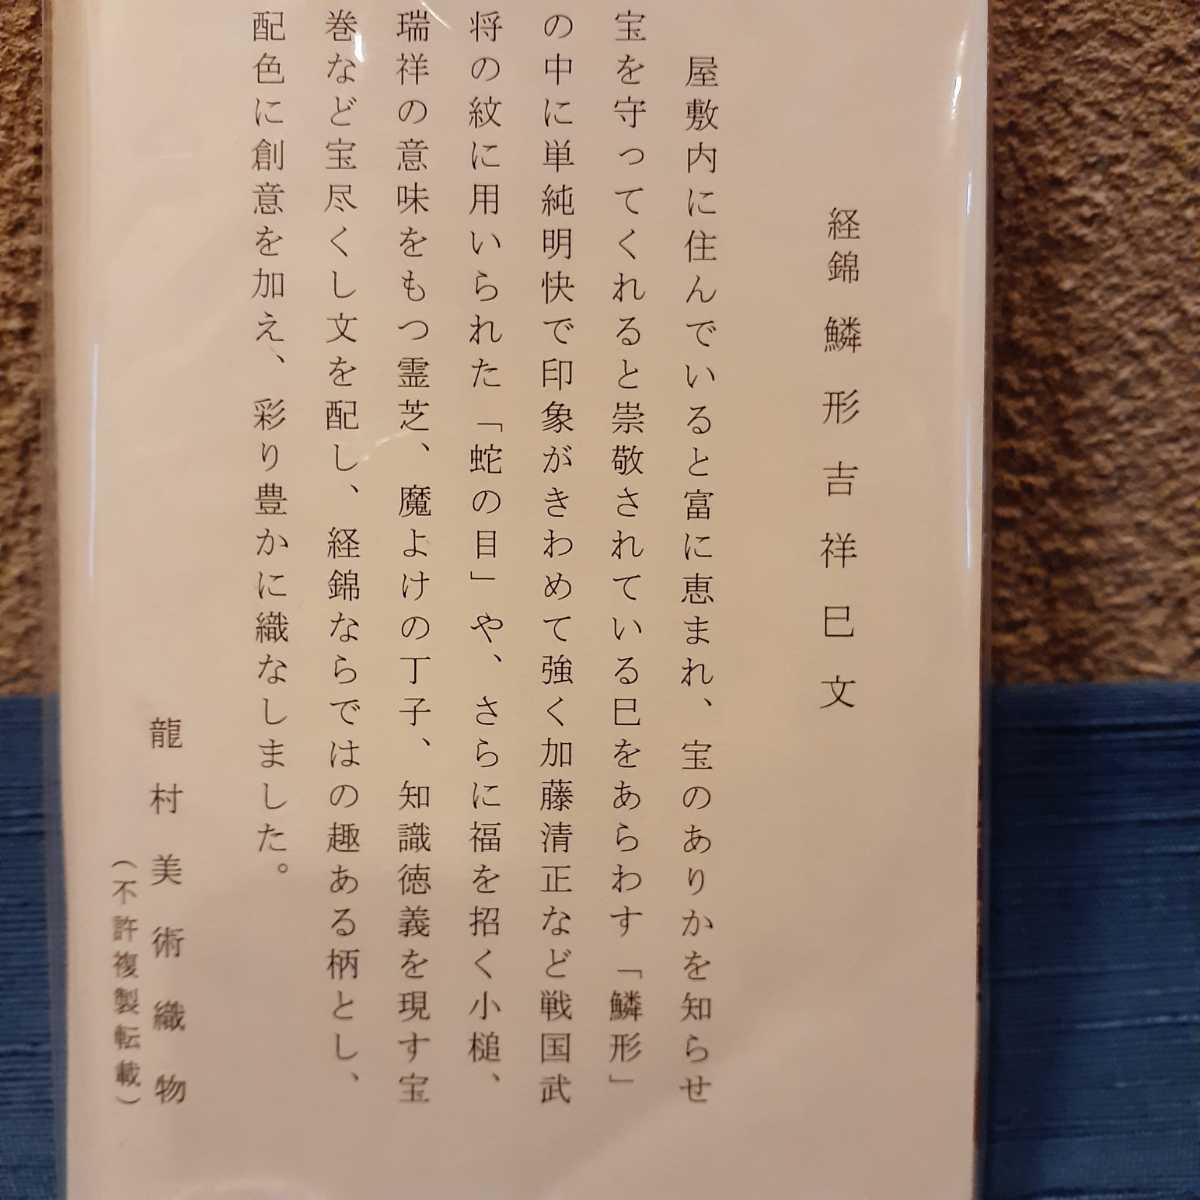 経錦 鱗形吉祥巳文
屋敷内に住んでいると富に恵まれ、宝のありかを知らせ
宝を守ってくれると崇敬されている巳をあらわす「鱗形」
の中に単純明快で印象がきわめて強く加藤清正など戦国武
将の紋に用いられた「蛇の目」や、さらに福を招く小槌、
瑞祥の意味をもつ霊芝、魔よけの丁子、知識徳義を現す宝
巻など宝尽くし文を配し、経錦ならではの趣ある柄とし、
配色に創意を加え、彩り豊かに織なしました。
龍村美術織物
（不許複製転載）